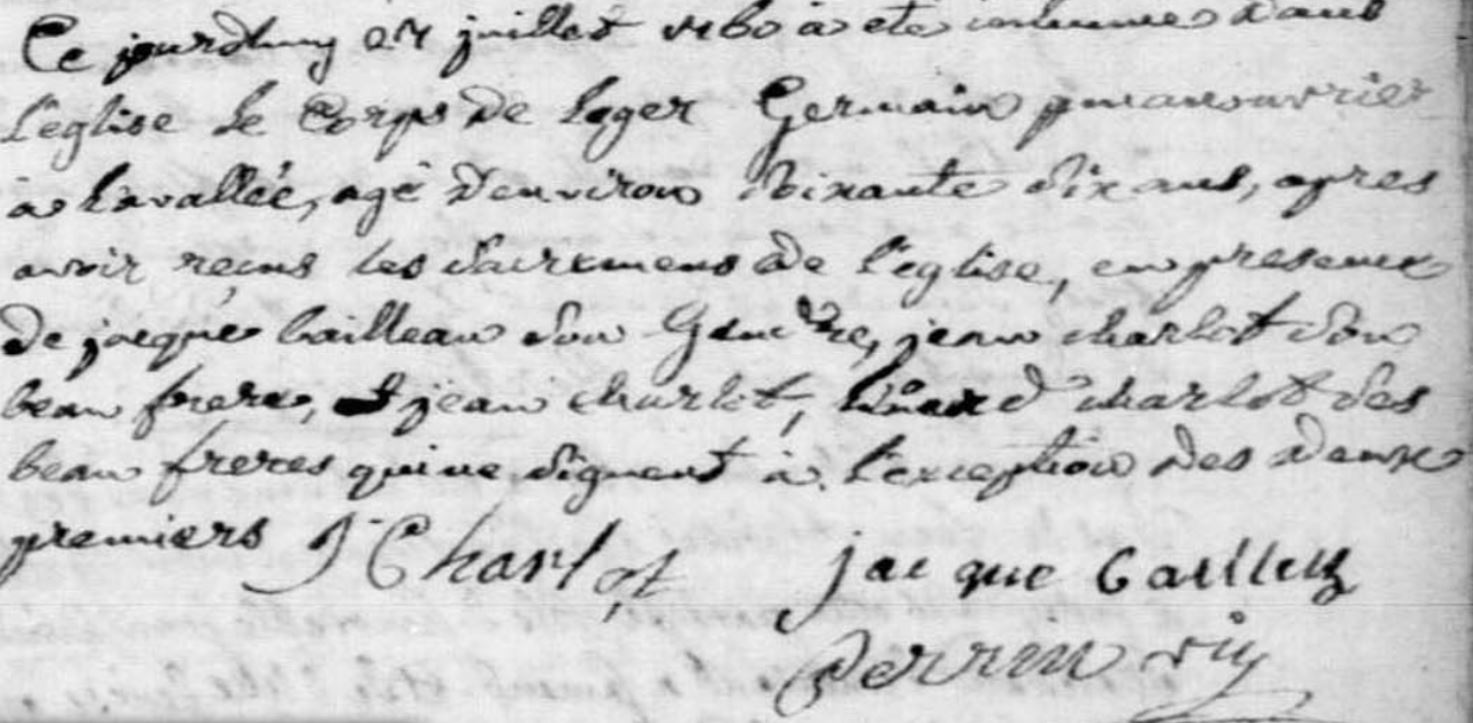 Ce jourdhuy 27 juillet 1760 a eté inhumé dans
l'eglise le Corps de leger Germain manouvrier
à lavallée, agé d'environ soixante dix ans, apres
avoir reçus les sacremens de l'eglise, en presence
de jacque bailleau son Gendre, jean charlot son
beau frere, et jean charlot, charlot ses
beau freres qui ne signent à l'exception des deux
premiers J Charlot jacque
perrin